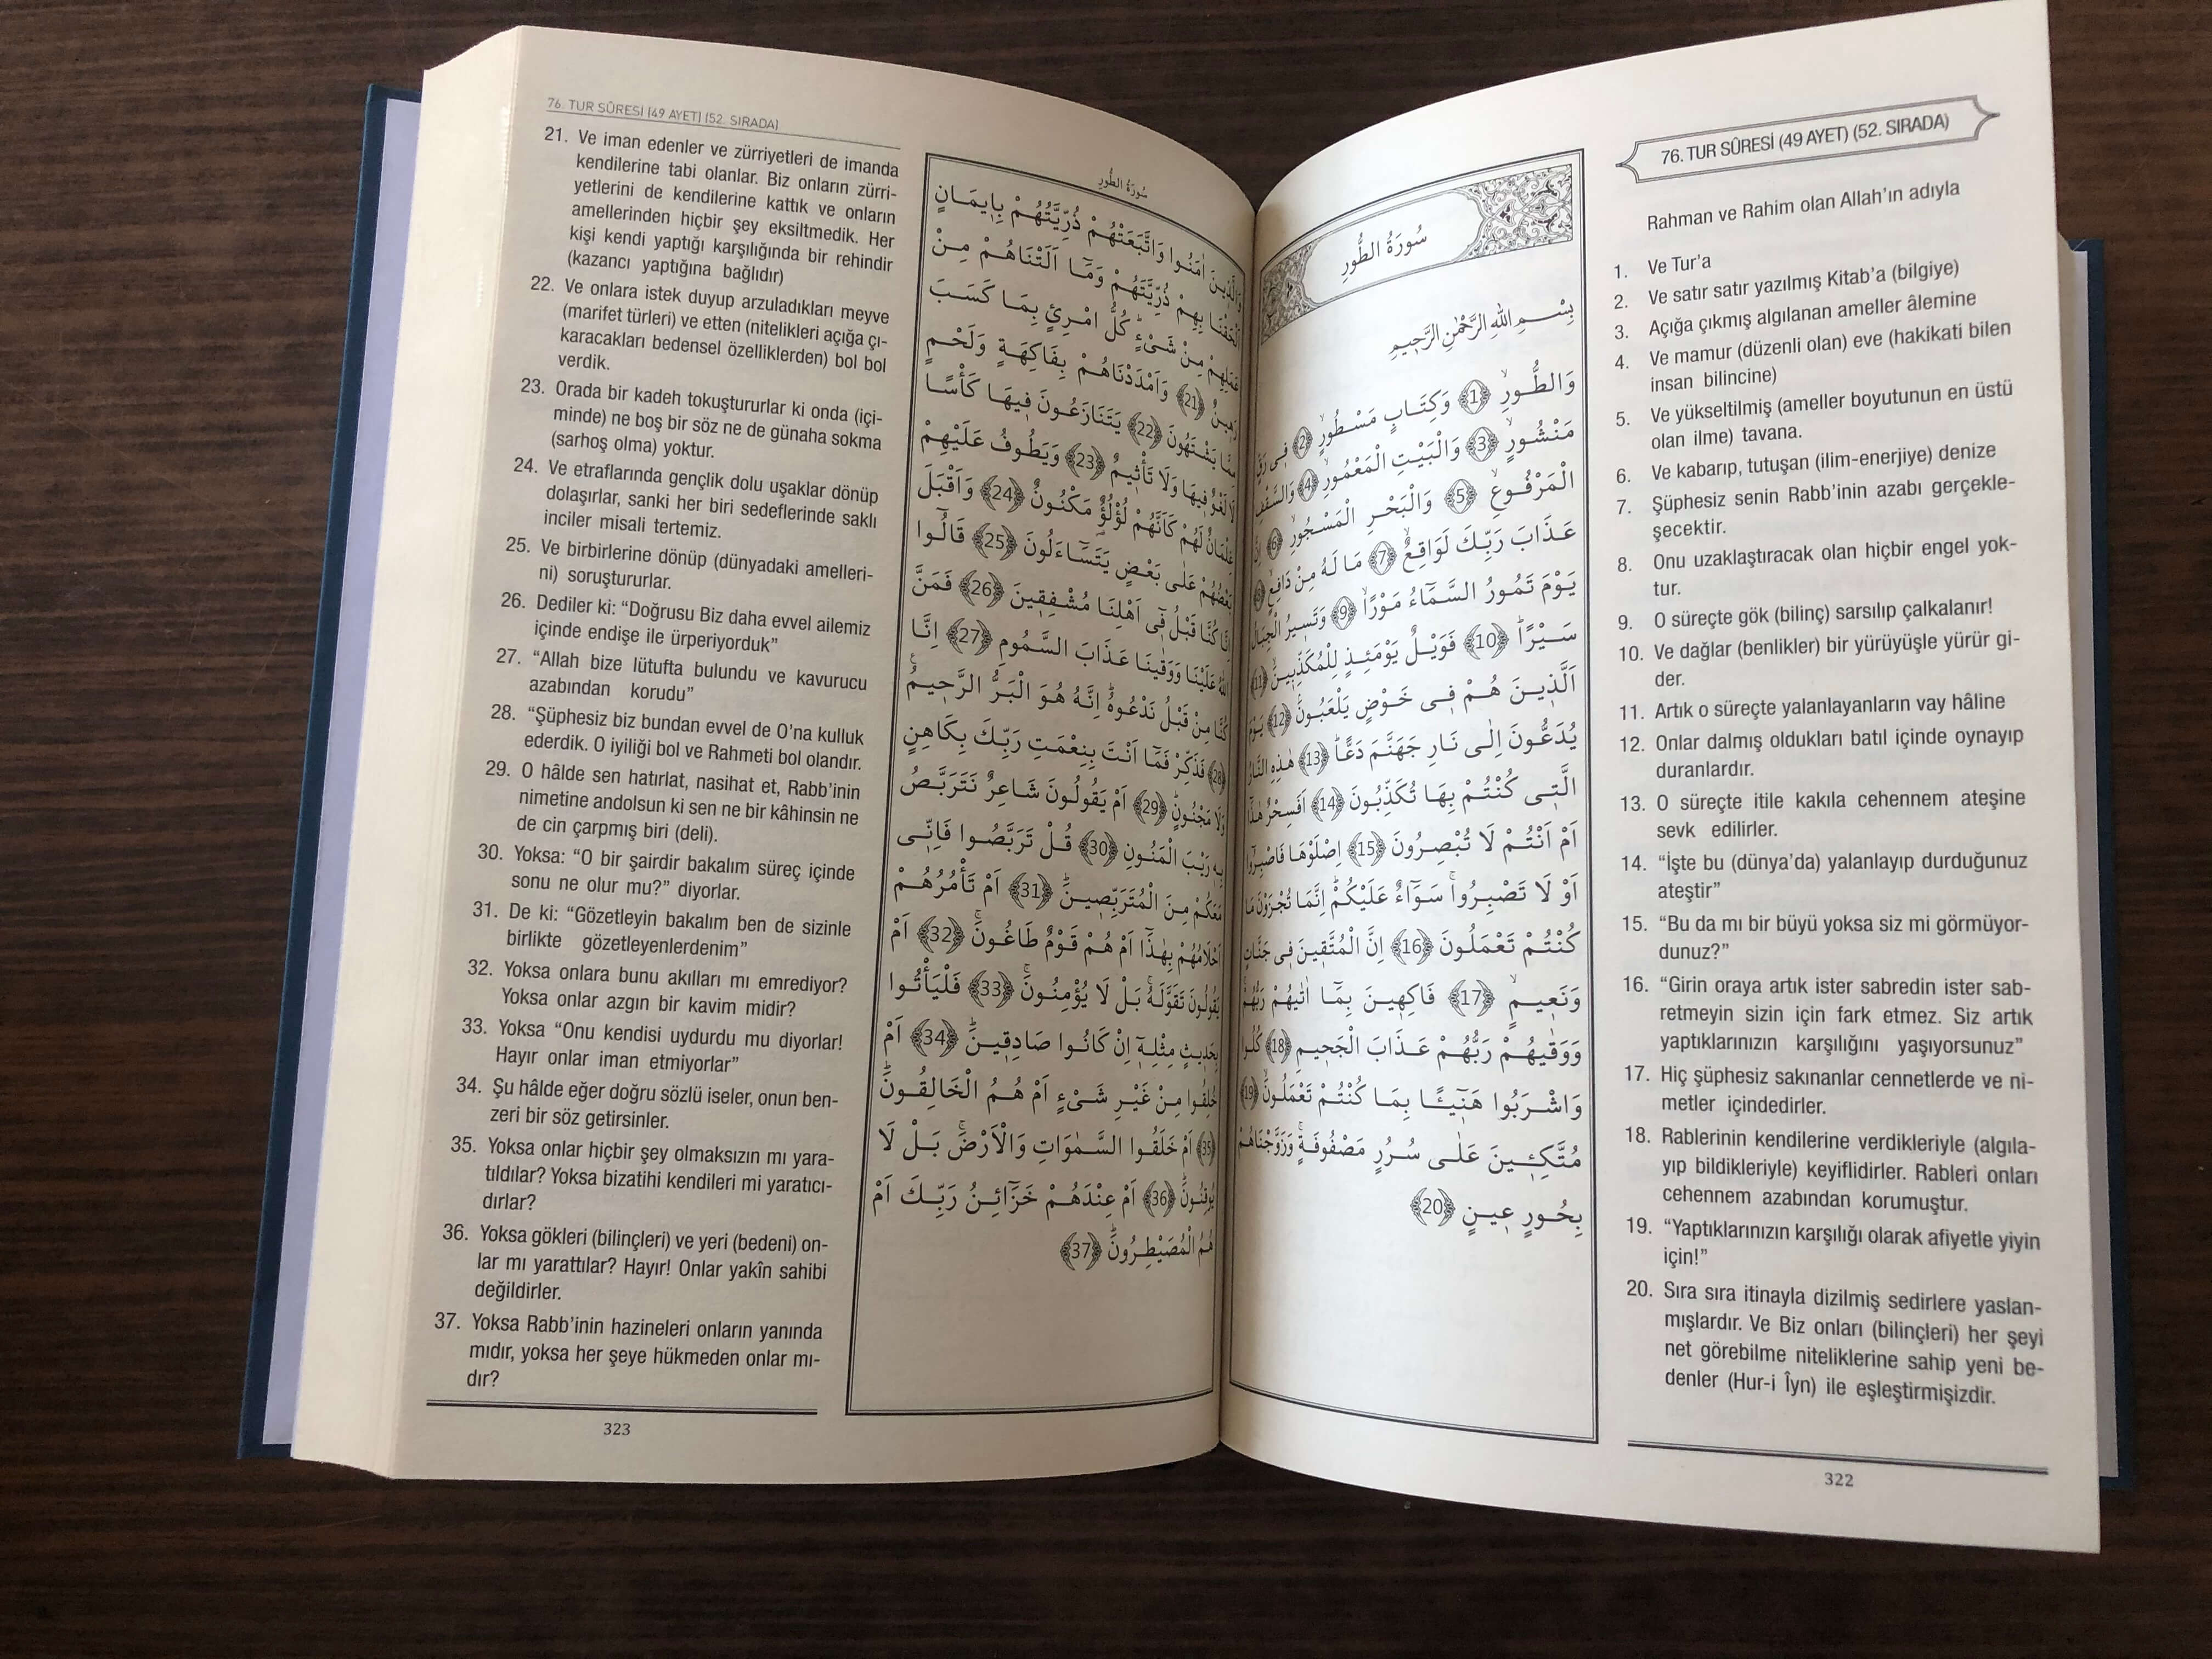 76. TUR SÛRESİ (49 AYET) (52. SIRADA)
Rahman ve Rahim olan Allah’ın adıyla
1. Ve Tur’a
2. Ve satır satır yazılmış Kitab’a (bilgiye)
3. Açığa çıkmış algılanan ameller âlemine
4. Ve mamur (düzenli olan) eve (hakikati bilen
insan bilincine)
5. Ve yükseltilmiş (ameller boyutunun en üstü
olan ilme) tavana.
6. Ve kabarıp, tutuşan (ilim-enerjiye) denize
7. Şüphesiz senin Rabb’inin azabı gerçekle-
şecektir.
8. Onu uzaklaştıracak olan hiçbir engel yok-
tur.
9. O süreçte gök (bilinç) sarsılıp çalkalanır!
10. Ve dağlar (benlikler) bir yürüyüşle yürür gi-
der.
11. Artık o süreçte yalanlayanların vay hâline
12. Onlar dalmış oldukları batıl içinde oynayıp
duranlardır.
13. O süreçte itile kakıla cehennem ateşine
sevk edilirler.
14. “İşte bu (dünya’da) yalanlayıp durduğunuz
ateştir”
15. “Bu da mı bir büyü yoksa siz mi görmüyor-
dunuz?”
16. “Girin oraya artık ister sabredin ister sab-
retmeyin sizin için fark etmez. Siz artık
yaptıklarınızın karşılığını yaşıyorsunuz”
17. Hiç şüphesiz sakınanlar cennetlerde ve ni-
metler içindedirler.
18. Rablerinin kendilerine verdikleriyle (algıla-
yıp bildikleriyle) keyiflidirler. Rableri onları
cehennem azabından korumuştur.
19. “Yaptıklarınızın karşılığı olarak afiyetle yiyin
için!”
20. Sıra sıra itinayla dizilmiş sedirlere yaslan-
mışlardır. Ve Biz onları (bilinçleri) her şeyi
net görebilme niteliklerine sahip yeni be-
denler (Hur-i Îyn) ile eşleştirmişizdir.
322
سُورَةُ الطُّورِ
بِسْــمِ اللهِ الرَّحْمٰنِ الرَّحِيمِ
وَالطُّورِۙ ﴿1﴾ وَكِتَابٍ مَسْطُورٍۙ ﴿2﴾ فِي رَقٍّ
مَنْشُورٍۙ ﴿3﴾ وَالْبَيْتِ الْمَعْمُورِۙ ﴿4﴾ وَالسَّقْفِ
الْمَرْفُوعِۙ ﴿5﴾ وَالْبَحْرِ الْمَسْجُورِۙ ﴿6﴾ اِنَّ
عَذَابَ رَبِّكَ لَوَاقِعٌۙ ﴿7﴾ مَا لَهُ مِنْ دَافِعٍۙ ﴿8﴾
يَوْمَ تَمُورُ السَّمَٓاءُ مَوْرًاۙ ﴿9﴾ وَتَسِيرُ الْجِبَالُ
سَيْرًاۜ ﴿10﴾ فَوَيْلٌ يَوْمَئِذٍ لِلْمُكَذِّبِينَۙ ﴿11﴾
اَلَّذِينَ هُمْ فِي خَوْضٍ يَلْعَبُونَۢ ﴿12﴾ يَوْمَ
يُدَعُّونَ اِلٰى نَارِ جَهَنَّمَ دَعًّاۜ ﴿13﴾ هٰذِهِ النَّارُ
الَّتِي كُنْتُمْ بِهَا تُكَذِّبُونَ ﴿14﴾ اَفَسِحْرٌ هٰذَٓا
اَمْ اَنْتُمْ لَا تُبْصِرُونَ ﴿15﴾ اِصْلَوْهَا فَاصْبِرُٓوا
اَوْ لَا تَصْبِرُواۚ سَوَٓاءٌ عَلَيْكُمْۜ اِنَّمَا تُجْزَوْنَ مَا
كُنْتُمْ تَعْمَلُونَ ﴿16﴾ اِنَّ الْمُتَّقِينَ فِي جَنَّاتٍ
وَنَعِيمٍۙ ﴿17﴾ فَاكِهِينَ بِمَٓا اٰتٰيهُمْ رَبُّهُمْۚ
وَوَقٰيهُمْ رَبُّهُمْ عَذَابَ الْجَحِيمِ ﴿18﴾ كُلُوا
وَاشْرَبُوا هَنِٓيـًٔا بِمَا كُنْتُمْ تَعْمَلُونَۙ ﴿19﴾
مُتَّكِـِٔينَ عَلٰى سُرُرٍ مَصْفُوفَةٍۚ وَزَوَّجْنَاهُمْ
بِحُورٍ عِينٍ ﴿20﴾
سُورَةُ الطُّورِ
وَالَّذِينَ اٰمَنُوا وَاتَّبَعَتْهُمْ ذُرِّيَّتُهُمْ بِاِيمَانٍ
اَلْحَقْنَا بِهِمْ ذُرِّيَّتَهُمْ وَمَٓا اَلَتْنَاهُمْ مِنْ
عَمَلِهِمْ مِنْ شَيْءٍۜ كُلُّ امْرِئٍ بِمَا كَسَبَ
رَهِينٌ ﴿21﴾ وَاَمْدَدْنَاهُمْ بِفَاكِهَةٍ وَلَحْمٍ
مِمَّا يَشْتَهُونَ ﴿22﴾ يَتَنَازَعُونَ فِيهَا كَأْسًا
لَا لَغْوٌ فِيهَا وَلَا تَأْثِيمٌ ﴿23﴾ وَيَطُوفُ عَلَيْهِمْ
غِلْمَانٌ لَهُمْ كَاَنَّهُمْ لُؤْلُؤٌ مَكْنُونٌ ﴿24﴾ وَاَقْبَلَ
بَعْضُهُمْ عَلٰى بَعْضٍ يَتَسَٓاءَلُونَ ﴿25﴾ قَالُٓوا
اِنَّا كُنَّا قَبْلُ فِٓي اَهْلِنَا مُشْفِقِينَ ﴿26﴾ فَمَنَّ
اللهُ عَلَيْنَا وَوَقٰينَا عَذَابَ السَّمُومِ ﴿27﴾ اِنَّا
كُنَّا مِنْ قَبْلُ نَدْعُوهُۜ اِنَّهُ هُوَ الْبَرُّ الرَّحِيمُ۟
﴿28﴾ فَذَكِّرْ فَمَٓا اَنْتَ بِنِعْمَتِ رَبِّكَ بِكَاهِنٍ
وَلَا مَجْنُونٍۜ ﴿29﴾ اَمْ يَقُولُونَ شَاعِرٌ نَتَرَبَّصُ
بِهِ رَيْبَ الْمَنُونِ ﴿30﴾ قُلْ تَرَبَّصُوا فَاِنِّي
مَعَكُمْ مِنَ الْمُتَرَبِّصِينَۜ ﴿31﴾ اَمْ تَأْمُرُهُمْ
اَحْلَامُهُمْ بِهٰذَٓا اَمْ هُمْ قَوْمٌ طَاغُونَۚ ﴿32﴾ اَمْ
يَقُولُونَ تَقَوَّلَهُۚ بَلْ لَا يُؤْمِنُونَۚ ﴿33﴾ فَلْيَأْتُوا
بِحَدِيثٍ مِثْلِهِٓ اِنْ كَانُوا صَادِقِينَۜ ﴿34﴾ اَمْ
خُلِقُوا مِنْ غَيْرِ شَيْءٍ اَمْ هُمُ الْخَالِقُونَۜ
﴿35﴾ اَمْ خَلَقُوا السَّمٰوَاتِ وَالْاَرْضَۚ بَلْ لَا
يُوقِنُونَۜ ﴿36﴾ اَمْ عِنْدَهُمْ خَزَٓائِنُ رَبِّكَ اَمْ
هُمُ الْمُصَيْطِرُونَۜ ﴿37﴾
76. TUR SÛRESİ (49 AYET) (52. SIRADA)
21. Ve iman edenler ve zürriyetleri de imanda
kendilerine tabi olanlar. Biz onların zürri-
yetlerini de kendilerine kattık ve onların
amellerinden hiçbir şey eksiltmedik. Her
kişi kendi yaptığı karşılığında bir rehindir
(kazancı yaptığına bağlıdır)
22. Ve onlara istek duyup arzuladıkları meyve
(marifet türleri) ve etten (nitelikleri açığa çı-
karacakları bedensel özelliklerden) bol bol
verdik.
23. Orada bir kadeh tokuştururlar ki onda (içi-
minde) ne boş bir söz ne de günaha sokma
(sarhoş olma) yoktur.
24. Ve etraflarında gençlik dolu uşaklar dönüp
dolaşırlar, sanki her biri sedeflerinde saklı
inciler misali tertemiz.
25. Ve birbirlerine dönüp (dünyadaki amelleri-
ni) soruştururlar.
26. Dediler ki: “Doğrusu Biz daha evvel ailemiz
içinde endişe ile ürperiyorduk”
27. “Allah bize lütufta bulundu ve kavurucu
azabından korudu”
28. “Şüphesiz biz bundan evvel de O’na kulluk
ederdik. O iyiliği bol ve Rahmeti bol olandır.
29. O hâlde sen hatırlat, nasihat et, Rabb’inin
nimetine andolsun ki sen ne bir kâhinsin ne
de cin çarpmış biri (deli).
30. Yoksa: “O bir şairdir bakalım süreç içinde
sonu ne olur mu?” diyorlar.
31. De ki: “Gözetleyin bakalım ben de sizinle
birlikte gözetleyenlerdenim”
32. Yoksa onlara bunu akılları mı emrediyor?
Yoksa onlar azgın bir kavim midir?
33. Yoksa “Onu kendisi uydurdu mu diyorlar!
Hayır onlar iman etmiyorlar”
34. Şu hâlde eğer doğru sözlü iseler, onun ben-
zeri bir söz getirsinler.
35. Yoksa onlar hiçbir şey olmaksızın mı yara-
tıldılar? Yoksa bizatihi kendileri mi yaratıcı-
dırlar?
36. Yoksa gökleri (bilinçleri) ve yeri (bedeni) on-
lar mı yarattılar? Hayır! Onlar yakîn sahibi
değildirler.
37. Yoksa Rabb’inin hazineleri onların yanında
mıdır, yoksa her şeye hükmeden onlar mı-
dır?
323